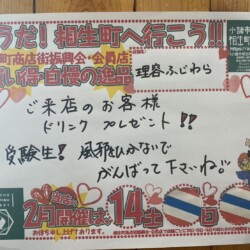 うだ!相生町へ行こう!!
町商店街振興会・会員店
し得・自慢の逸品
理容ふじわら
ご来店のお客様
ドリンク プレゼント!!
受験生! 風邪ひかないで
がんばって下さいね。
2月開催
14土
日
お待ち申し上げております。